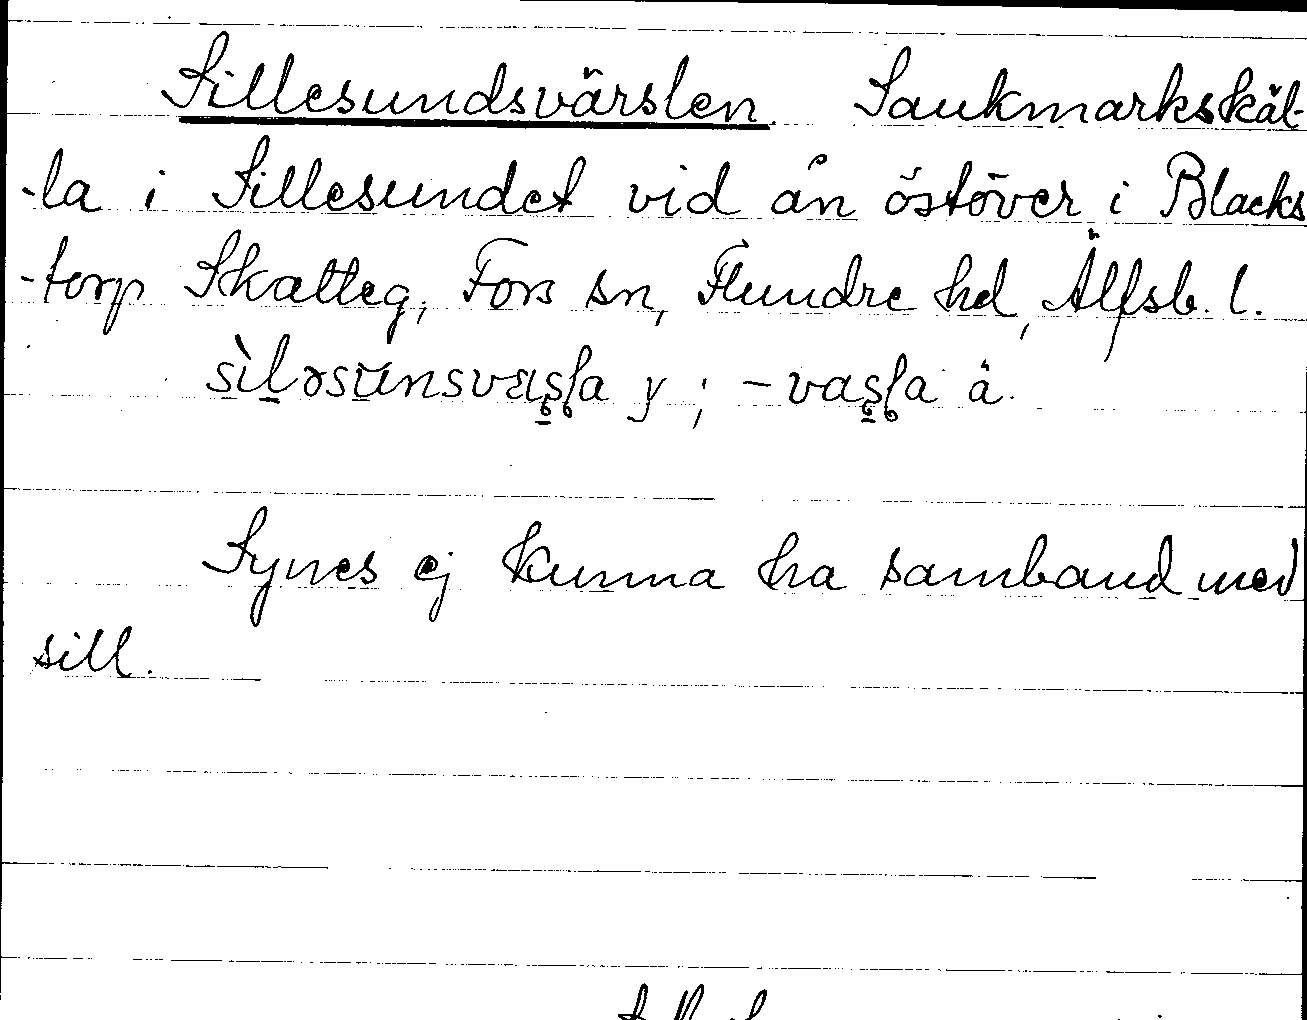 Sillesundsvärslen. Sankmarkskäl-
-la i Sillesundet vid ån östöver i Blacks
-torp Skatteg, Fors sn, Flundre hd, Älfsb. l.
sìləsūnsvaşḷa y ; -vaşḷa ä.
Synes ej kunna ha samband med
sill.